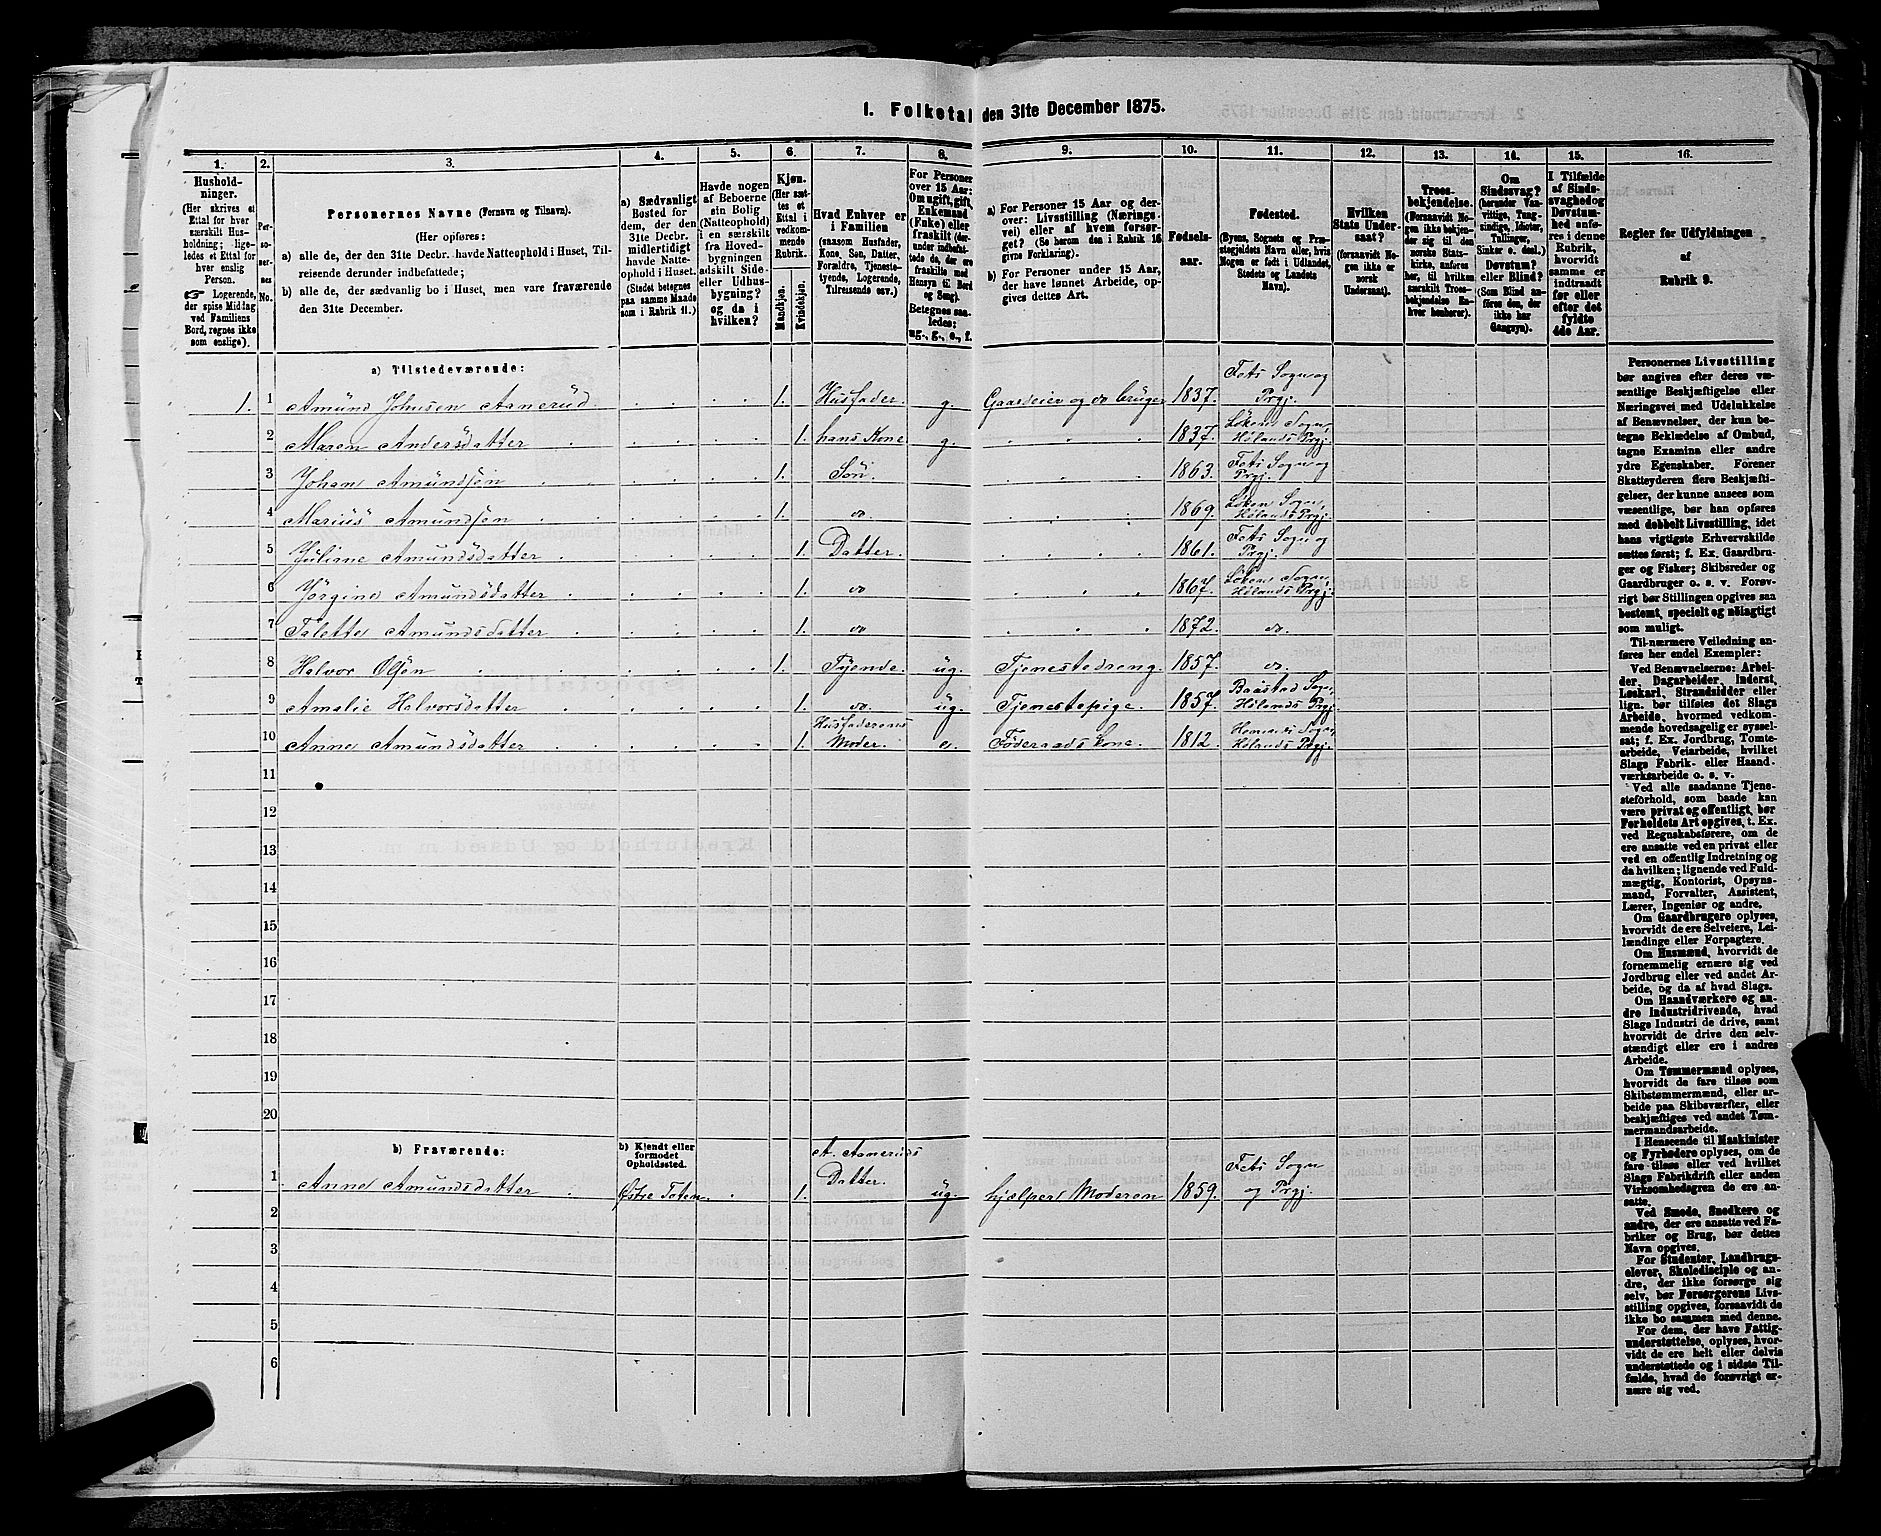 1. Folketal den 31te December 1875.
1.
2.
3.
4.
5.
6.
7.
8.
9.
10.
11.
12.
13.
14.
15.
16.
Hushold-
ninger.
(Her skrives et
Ettal for hver
særskilt Hus-
holdning; lige-
ledes et Ettal for
hver enslig
Person.
☞ Logerende,
der spise Middag
ved Familiens
Bord, regnes ikke
som enslige).
Per-
so-
ner-
nes
No.
Personernes Navne (Fornavn og Tilnavn).
(Her opføres:
a) alle de, der den 31te Decbr. havde Natteophold i Huset, Til-
reisende derunder indbefattede;
b) alle de, der sædvanlig bo i Huset, men vare fraværende
den 31te December.
a) Sædvanligt
Bosted for
dem, der den
31te Decbr.
midlertidigt
havde Natte-
ophold i Huset.
(Stedet betegnes
paa samme Maade
som i Rubrik 11.)
Havde nogen
af Beboerne
sin Bolig
(Natteophold)
i en særskilt
fra Hoved-
bygningen
adskilt Side-
eller Udhus-
bygning?
og da i
hvilken?
Kjøn.
(Her sæt-
tes et
Ettal i
vedkom-
mende
Rubrik.
Mandkjøn.
Kvindekjøn.
Hvad Enhver er
i Familien
(saasom Husfader,
Kone, Søn, Datter,
Forældre, Tjeneste-
tyende, Logerende,
Tilreisende osv.)
For Personer
over 15 Aar:
Om ugift, gift,
Enkemand
(Enke) eller
fraskilt (der-
under indbefat-
tede de, der ere
fraskilte med
Hensyn til Bord
og Seng).
Betegnes saa-
ledes:
ug., g., e., f.
a) For Personer 15 Aar og der-
over: Livsstilling (Nærings-
vei) eller af hvem forsør-
get? (Se herom den i Rubrik 16
givne Forklaring).
b) For Personer under 15 Aar,
der have lønnet Arbeide, op-
gives dettes Art.
Fødsels-
aar.
Fødested.
(Byens, Sognets og Præ-
stegjeldets Navn eller, hvis
Nogen er født i Udlandet,
Stedets og Landets
Navn).
Hvilken
Stats Under-
saat?
(forsaavidt No-
gen ikke er
norsk
Undersaat).
Troes-
bekjendelse.
(Forsaavidt No-
gen ikke bekjen-
der sig til den
norske Stats-
kirke, anføres
her, til hvilken
særskilt Troes-
bekjendelse En-
hver henhører).
Om
Sindssvag?
(herunder Van-
vittige, Tung-
sindige, Idioter,
Tullinger,
Sinker o. desl.)
Døvstum?
eller Blind?
(Som Blind an-
føres den, der
ikke har
Gangsyn).
I Tilfælde
af Sinds-
svaghed og
Døvstum-
hed anfø-
res i denne
Rubrik,
hvorvidt
samme er
indtraadt
før eller
efter det
fyldte
4de Aar.
Regler for Udfyldningen
af
Rubrik 9.
a) Tilstedeværende:
1. 1 Amund Johnsen Aanerud. 1. Husfader. g. Gaardeier og do bruger 1837. Fets Sogn og Prgj.
2 Maren Andersdatter 1. hans Kone g. 1837. Løkens Sogn, Hølands Prgj.
3 Johan Amundsen 1. Søn. 1863. Fets Sogn og Prgj.
4 Marius Amundsen 1. do 1869. Løken Sogn, Hølands Prgj.
5 Juliane Amundsdatter 1. Datter. 1861. Fets Sogn og Prgj.
6 Jørgine Amundsdatter 1. do 1867. Løkens Sogn, Hølands Prgj.
7 Talette Amundsdatter 1. do 1872. do.
8 Halvor Olsen 1. Tyende. ug. Tjenestedreng. 1857. do.
9 Amalie Halvorsdatter 1. do. ug. Tjenestepige. 1857. Baastad Sogn, Hølands Prgj.
10 Anne Amundsdatter 1. Husfaderens Moder. e. Føderaads Kone. 1812. Hemnes Sogn, Hølands Prgj.
11
12
13
14
15
16
17
18
19
20
b) Fraværende:
b) Kjendt eller
formodet
Opholdssted.
1 Anne Amundsdatter Østre Toten. 1. A. Aaneruds Datter. ug. hjælper Moderen 1859. Fets Sogn og Prgj.
2
3
4
5
6
Personernes Livsstilling
bør angives efter deres væ-
sentlige Beskjæftigelse eller
Næringsvei med Udelukkelse
af Benævnelser, der kun be-
tegne Beklædelse af Ombud,
tagne Examina eller andre
ydre Egenskaber. Forener
Skatteyderen flere Beskjæfti-
gelser, der kunne ansees som
væsentlige, bør han opføres
med dobbelt Livsstilling, idet
hans vigtigste Erhvervskilde
sættes først; f. Ex. Gaardbru-
ger og Fisker; Skibsreder og
Gaardbruger o. s. v. Forøv-
rigt bør Stillingen opgives saa
bestemt, specielt og nøiagtigt
som muligt.
Til nærmere Veiledning an-
føres her endel Exempler:
Ved Benævnelserne: Arbei-
der, Dagarbeider, Inderst,
Løskarl, Strandsidder eller
lign. bør tilføies det Slags
Arbeide, hvormed vedkom-
mende hovedsagelig er syssel-
sat; f. Ex. Jordbrug, Tomte-
arbeide, Veiarbeide, hvilket
Slags Fabrik- eller Haand-
værksarbeide o. s. v.
Ved alle saadanne Tjene-
steforhold, som baade kan
være privat og offentligt, bør
Forholdets Art opgives, t. Ex.
ved Regnskabsførere, om de
ere ansatte ved en privat eller
ved en offentlig Indretning og
da hvilken; lignende ved Fuld-
mægtig, Kontorist, Opsyns-
mand, Forvalter, Assistent,
Lærer, Ingeniør og andre.
Om Gaardbrugere oplyses,
hvorvidt de ere Selveiere, Lei-
lændinge eller Forpagtere.
Om Husmænd, hvorvidt de
fornemmelig ernære sig ved
Jordbrug eller ved andet Ar-
beide, og da af hvad Slags.
Om Haandværkere og an-
dre Industridrivende, hvad
Slags Industri de drive, samt
hvorvidt de drive den selv-
stændigt eller ere i andres
Arbeide.
Om Tømmermænd oplyses,
hvorvidt de fare tilsøs som
Skibstømmermænd, eller ar-
beide paa Skibsværfter, eller
beskjæftiges ved andet Tøm-
mermandsarbeide.
I Henseende til Maskinister
og Fyrbødere oplyses, om de
fare tilsøs eller ved hvilket
Slags Fabrikdrift eller anden
Virksomhedsgren de ere an-
satte.
Ved Smede, Snedkere og
andre, der ere ansatte ved Fa-
briker og Brug, bør dettes
Navn opgives.
For Studenter, Landbrugs-
elever, Skoledisciple og an-
dre, der ikke forsørge sig
selv, bør Forsørgerens Livs-
stilling opgives, forsaavidt de
ikke bo sammen med denne.
For dem, der have Fattig-
understøttelse, oplyses, hvor-
vidt de ere helt eller delvis
understøttede og i sidste Til-
fælde, hvad de forøvrigt er-
nære sig ved.